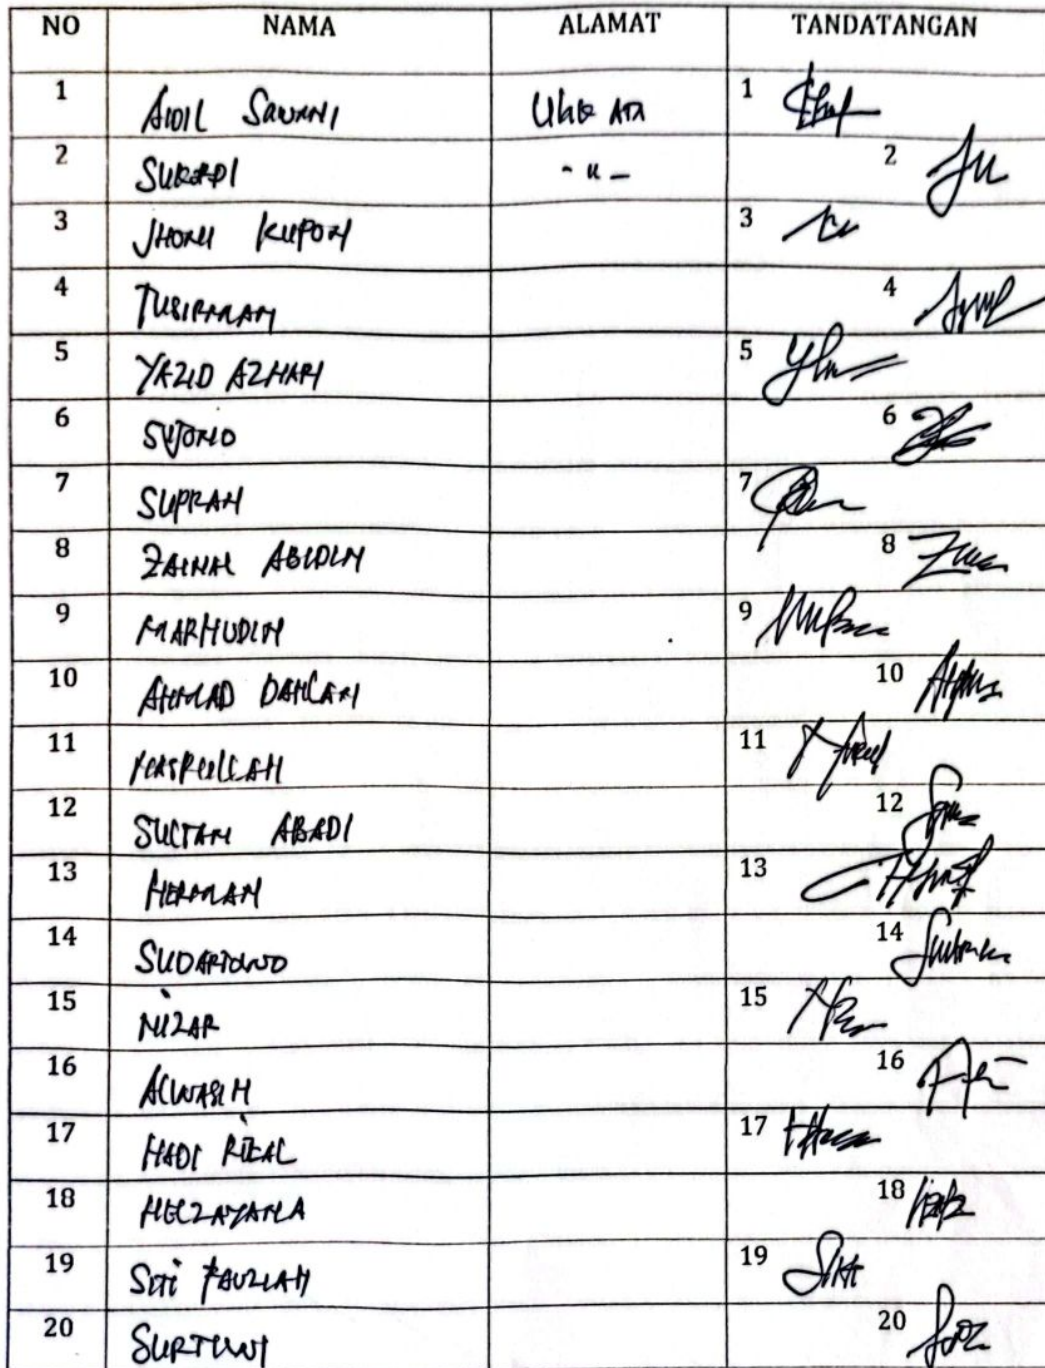 NO NAMA ALAMAT TANDATANGAN
1 AIDIL SAWANI 1
2 SUKARDI - " - 2
3 JHONI KUPON 3
4 TUSIRMAN 4
5 YAZID AZHARI 5
6 SUJONO 6
7 SUPRAN 7
8 ZAINAL ABIDIN 8
9 MARHUDIN 9
10 AHMAD DAHLAN 10
11 NASRULLAH 11
12 SULTAN ABADI 12
13 HERMAN 13
14 SUDARTOWO 14
15 NIZAR 15
16 ALWASIH 16
17 HADI RIZAL 17
18 HELZAYANA 18
19 SITI FAUZIAH 19
20 SURTUWI 20